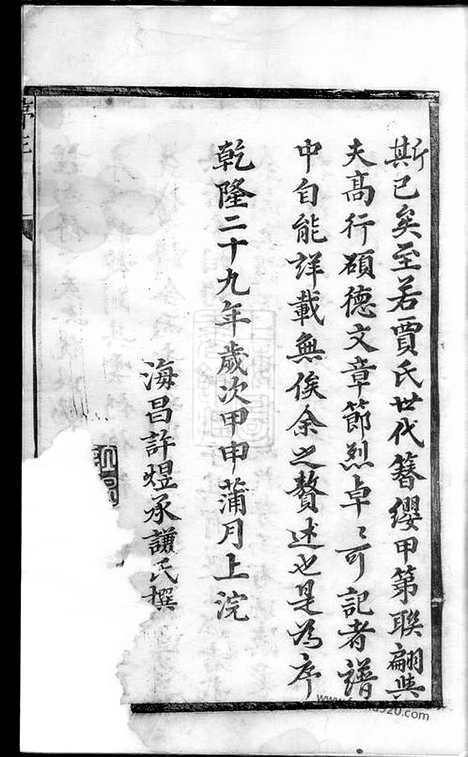 斯已矣至若賈氏世代簪纓甲第聯翩與
夫高行碩德文章節烈卓〻可記者譜
中自能詳載無俟余之贅述也是為序
乾隆二十九年歲次甲申蒲月上浣
海昌許煜承謙氏撰